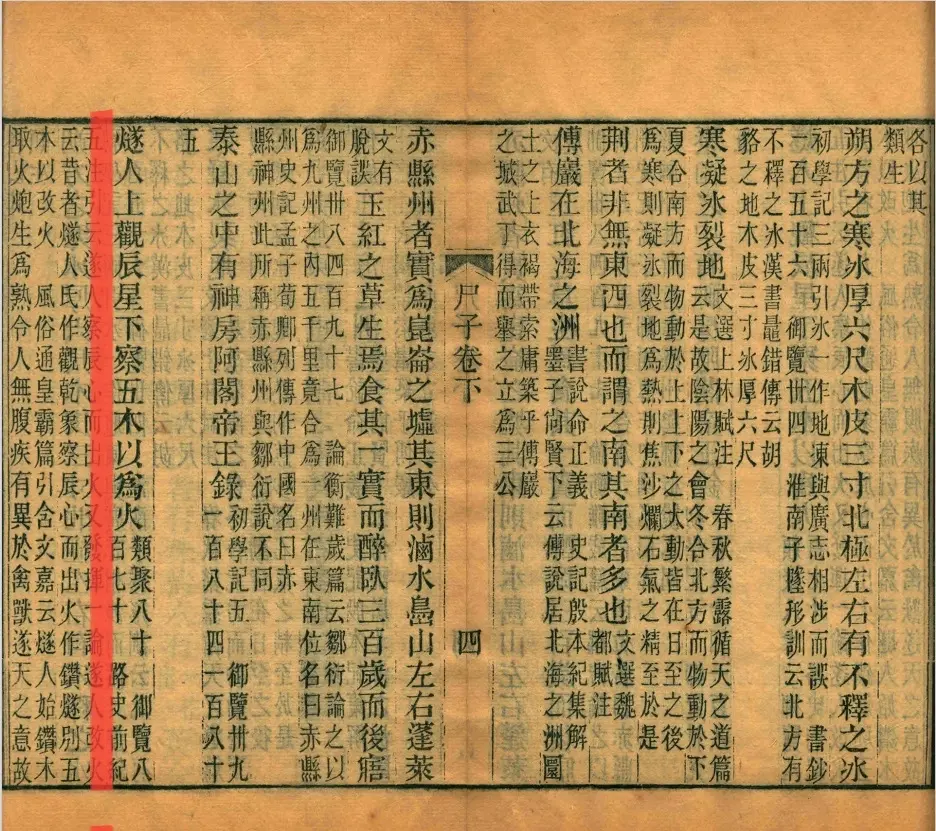 各以其
類生
朔方之寒冰厚六尺木皮三寸北極左右有不釋之冰
初學記三兩引冰一作地凍與廣志相涉而誤 書鈔
一百五十六 御覽卅四 淮南子墬形訓云北方有
不釋之冰漢書鼂錯傳云胡
貉之地木皮三寸冰厚六尺
寒凝冰裂地
文選上林賦注 春秋繁露循天之道篇
云是故陰陽之會冬合北方而物動於下
夏合南方而物動於上上下之大動皆在日至之後
爲寒則凝冰裂地爲熱則焦沙爛石氣之精至於是
荆者非無東西也而謂之南其南者多也
文選魏
都賦注
傅巖在北海之洲
書說命正義 史記殷本紀集解
墨子尚賢下云傅說居北海之洲圜
土之上衣褐帶索庸築乎傅巖
之城武丁得而舉之立爲三公
尸子卷下 四
赤縣州者實爲崑崙之墟其東則滷水島山左右蓬萊
文有
脫誤
玉紅之草生焉食其一實而醉臥三百歲而後寤
御覽卅八四百九十七 論衡難歲篇云鄒衍論之以
爲九州之內五千里竟合爲一州在東南位名曰赤縣
州史記孟子荀卿列傳作中國名曰赤
縣神州此所稱赤縣州與鄒衍說不同
泰山之中有神房阿閣帝王錄
初學記五 御覽卅九
一百八十四 六百八十
五
燧人上觀辰星下察五木以爲火
類聚八十 御覽八
百七十 路史前紀
五注引云遂人察辰心而出火又發揮一論遂人改火
云昔者燧人氏作觀乾象察辰心而出火作鑽燧別五
木以改火 風俗通皇霸篇引含文嘉云燧人始鑽木
取火炮生爲熟令人無腹疾有異於禽獸遂天之意故